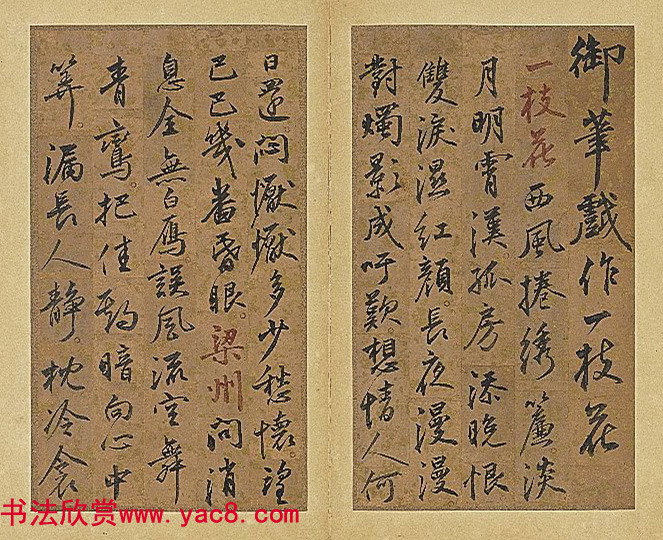 御筆戲作一枝花
一枝花西風捲綉簾淡
月明霄漢孤房添晚恨
雙淚濕紅顏長夜漫漫
對燭影成吁歎想情人何
日還悶懨懨多少愁懷望
巴巴幾番昏眼梁州問消
息全無白雁誤風流空舞
青鸞把佳期暗向心中
筭漏長人靜枕冷衾
书法欣赏www.yac8.com